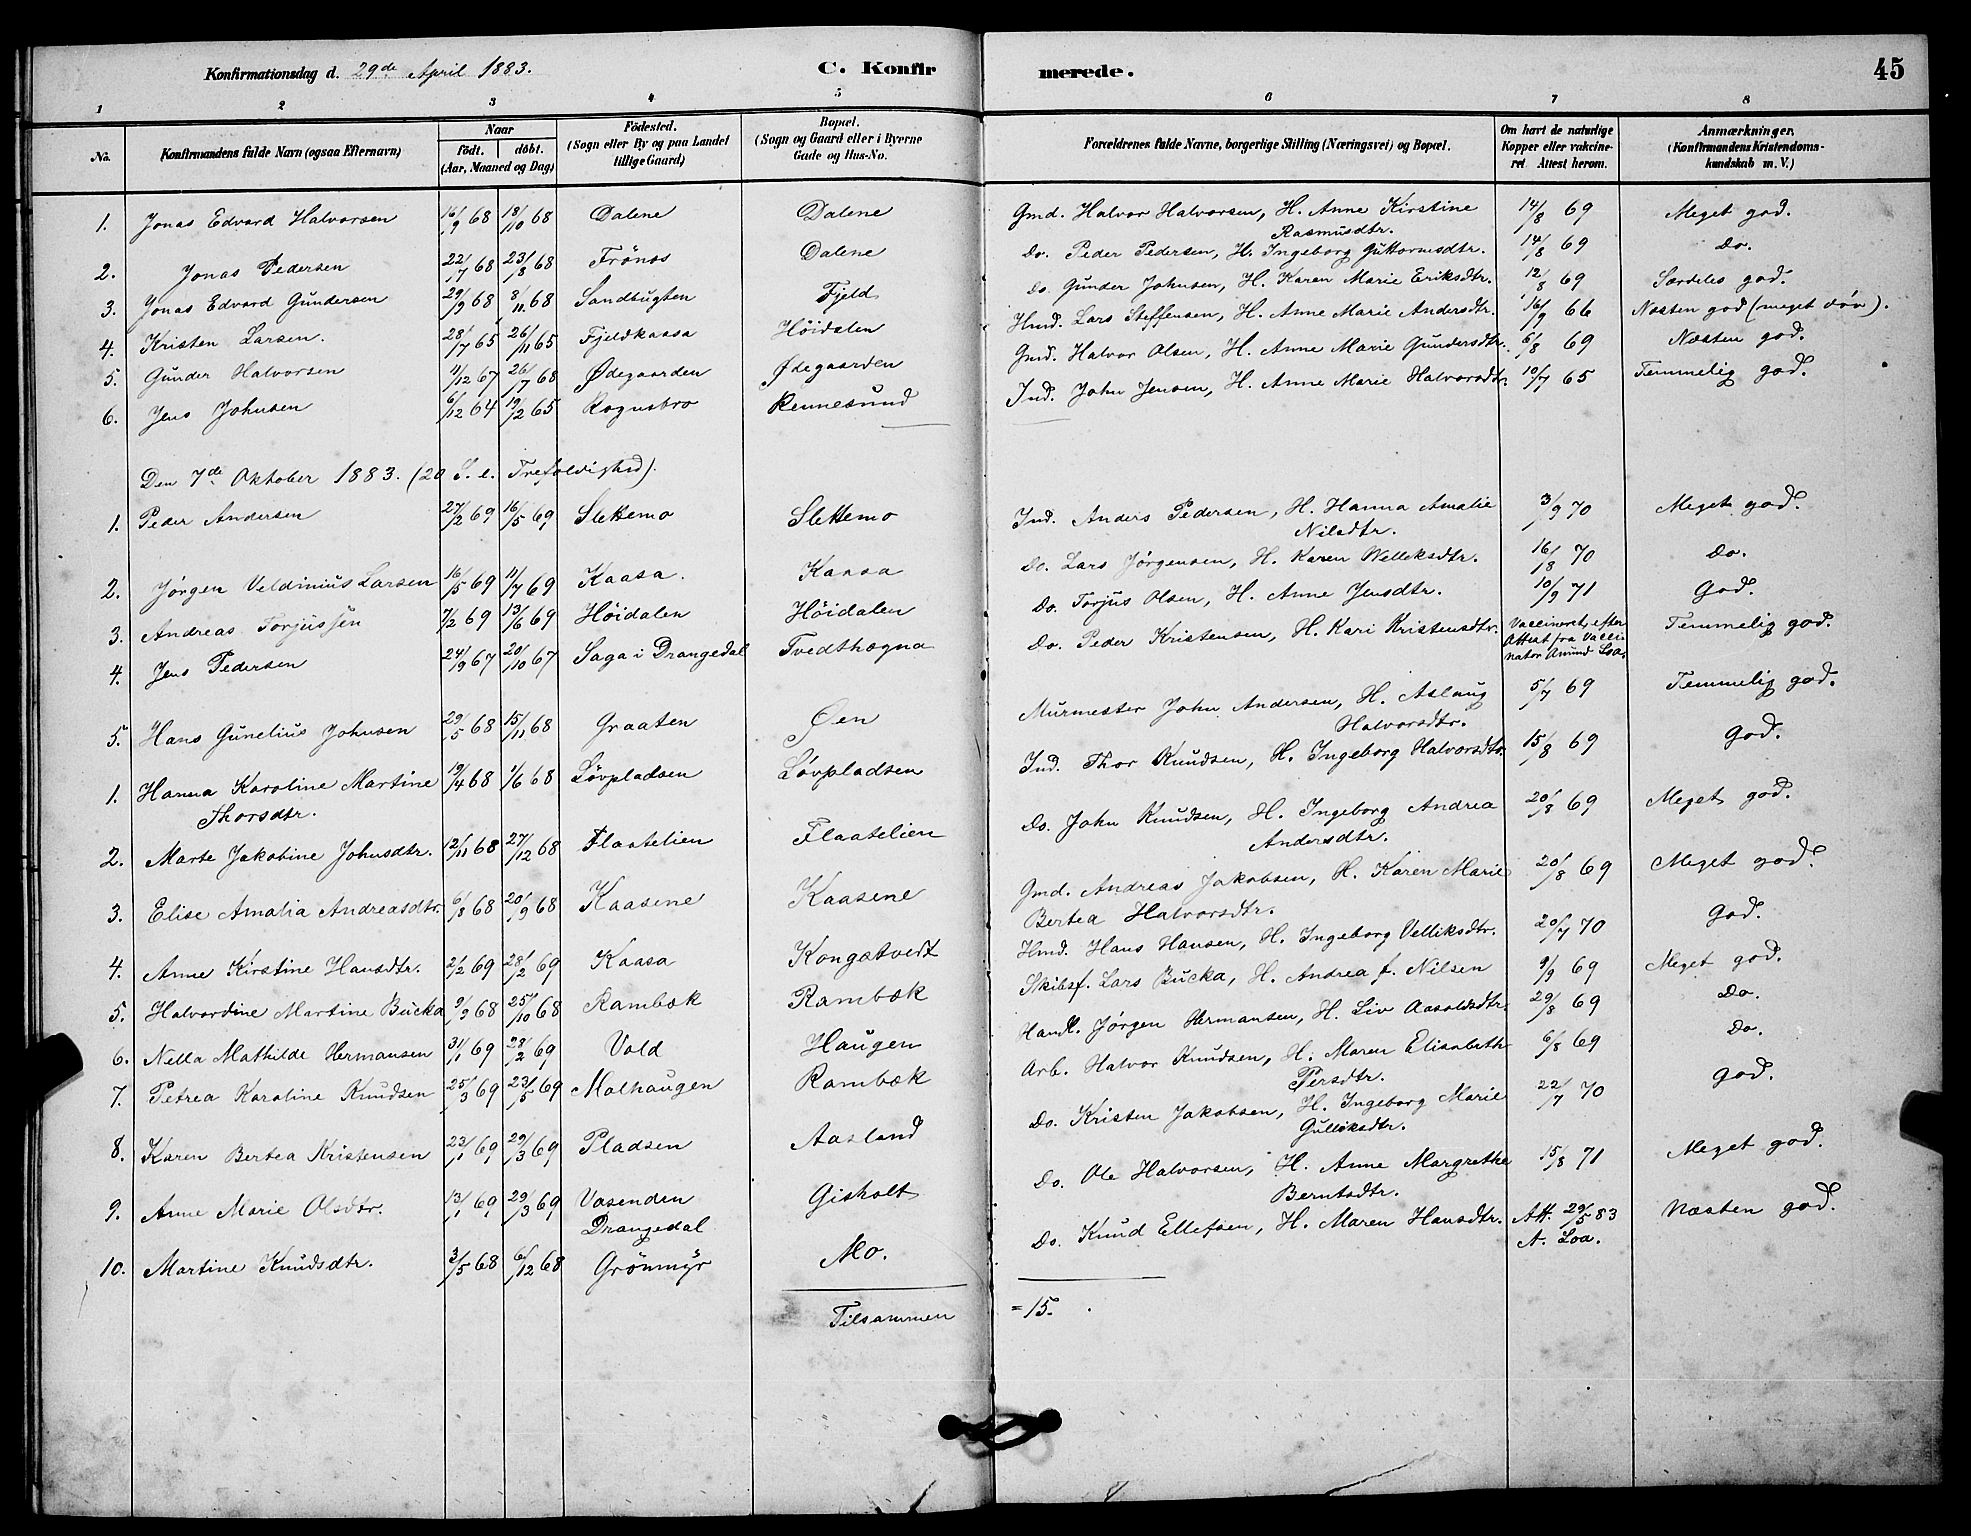 Konfirmationsdag d. 29de April 1883. C. Konfirmerede. 45
1 2 3 4 5 6 7 8
No. Konfirmandens fulde Navn (ogsaa Efternavn) Naar födt. döbt. (Aar, Maaned og Dag) Födested. (Sogn eller By og paa Landet tillige Gaard) Bopæl. (Sogn og Gaard eller i Byerne Gade og Hus-No. Forældrenes fulde Navne, borgerlige Stilling (Næringsvei) og Bopæl. Om havt de naturlige Kopper eller vakcineret. Attest herom. Anmærkninger. (Konfirmandens Kristendomskundskab m. V.)
1. Jonas Edvard Halvorsen 16/9 68 18/10 68 Dalene Dalene Gmd. Halvor Halvorsen, H. Anne Kirstine Rasmusdtr. 14/8 69 Meget god.
2. Jonas Pedersen 22/7 68 23/8 68 Frönæs Dalene Do. Peder Pedersen, H. Ingeborg Guttormsdtr. 14/8 69 Do.
3. Jonas Edvard Gundersen 29/9 68 8/11 68 Sandbugten Fjeld Do. Gunder Johnsen, H. Karen Marie Eriksdtr. 12/8 69 Særdeles god.
4. Kristen Larsen. 28/7 65 26/11 65 Fjeldkaasa Höidalen Hmd. Lars Steffensen, H. Anne Marie Andersdtr. 16/9 66 Næsten god (meget döv).
5. Gunder Halvorsen 11/12 67 26/7 68 Ødegaarden Ødegaarden Gmd. Halvor Olsen, H. Anne Marie Gundersdtr. 6/8 69 Næsten god.
6. Jens Johnsen 6/12 64 19/2 65 Rognsbro Rennesund Ind. John Jensen, H. Anne Marie Halvorsdtr. 10/7 65 Temmelig god.
Den 7de Oktober 1883. (20 S. e. Trefoldighed).
1. Peder Andersen 27/2 69 16/5 69 Slettemo Slettemo Ind. Anders Pedersen, H. Hanna Amalie Nilsdtr. 3/9 70 Meget god.
2. Jørgen Veldinius Larsen 16/5 69 11/7 69 Kaasa. Kaasa Do. Lars Jørgensen, H. Karen Welleksdtr. 16/8 70 Do.
3. Andreas Torjussen 7/2 69 13/6 69 Höidalen Höidalen Do. Torjus Olsen, H. Anne Jensdtr. 10/9 71 God.
4. Jens Pedersen 24/9 67 20/10 67 Saga i Drangedal Tvedthægna Do. Peder Kristensen, H. Kari Kristensdtr. Vaccineret, efter Attest fra Vaccinator Amund Loa. Temmelig god.
5. Hans Gunelius Johnsen 29/5 68 15/11 68 Graaten Øen Murmester John Andersen, H. Aslaug Halvorsdtr. 5/7 69 Temmelig god.
1. Hanna Karoline Martine Thorsdtr. 19/4 68 1/6 68 Lövpladsen Lövpladsen Ind. Thor Knudsen, H. Ingeborg Halvorsdtr. 15/8 69 God.
2. Marte Jakobine Johnsdtr. 12/11 68 27/12 68 Flaatelien Flaatelien Do. John Knudsen, H. Ingeborg Andrea Andersdtr. 20/8 69 Meget god.
3. Elise Amalia Andreasdtr. 6/8 68 20/9 68 Kaasene Kaasene Gmd. Andreas Jakobsen, H. Karen Marie Bertea Halvorsdtr. 20/8 69 Meget god.
4. Anne Kirstine Hansdtr. 2/2 69 28/2 69 Kaasa Kongstvedt Hmd. Hans Hansen, H. Ingeborg Velliksdtr. 20/7 70 God.
5. Halvordine Martine Bucka 9/9 68 25/10 68 Rambæk Rambæk Skibsf. Lars Bucka, H. Andrea f. Nilsen 9/9 69 Meget god.
6. Nella Mathilde Hermansen 31/1 69 28/2 69 Vold Haugen Handl. Jørgen Hermansen, H. Liv Aasoldsdtr. 29/8 69 Do.
7. Petrea Karoline Knudsen 25/3 69 23/5 69 Molhaugen Rambæk Arb. Halvor Knudsen, H. Maren Elisabeth Persdtr. 6/8 69 Do.
8. Karen Bertea Kristensen 23/1 69 29/3 69 Pladsen Aasland Do. Kristen Jakobsen, H. Ingeborg Marie Gulliksdtr. 22/7 70 God.
9. Anne Marie Olsdtr. 13/1 69 29/3 69 Vasenden Drangedal Gisholt Do. Ole Halvorsen, H. Anne Margrethe Berntsdtr. 15/8 71 Meget god.
10. Martine Knudsdtr. 3/5 68 6/12 68 Grönmyr Mo. Do. Knud Ellefsen, H. Maren Hansdtr. Att. 29/5 83 A. Loa. Næsten god.
Tilsammen = 15.